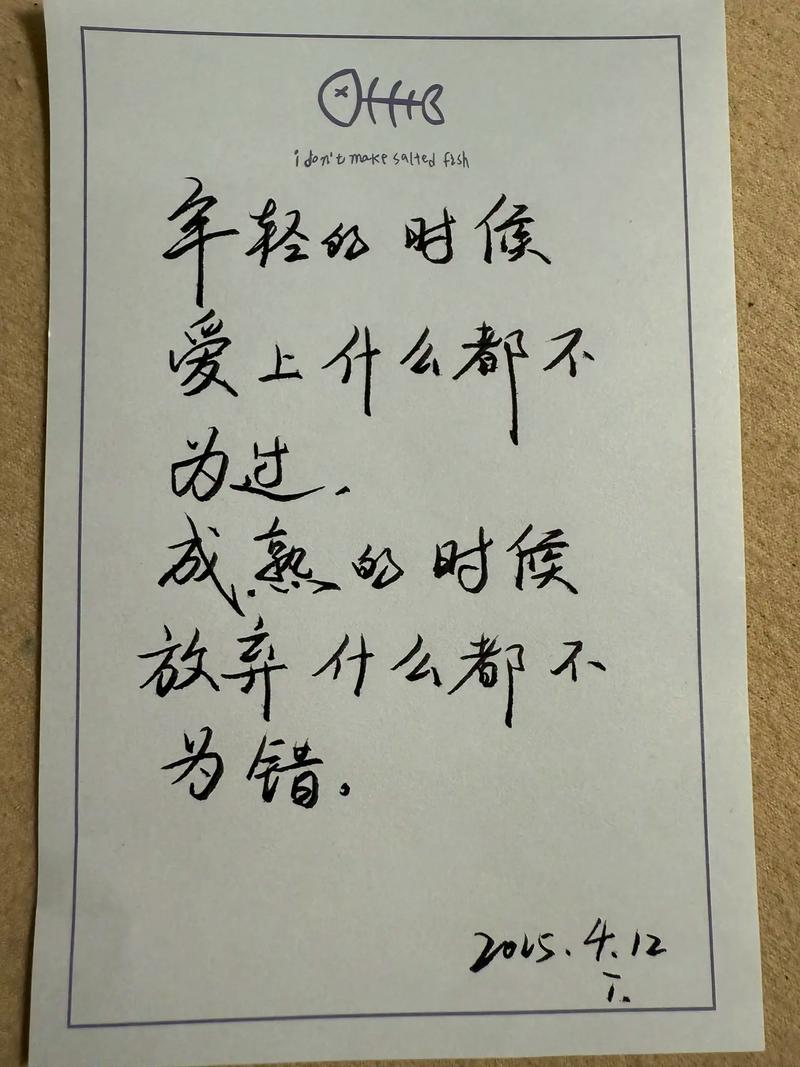 i don't make salted fish
年轻的时候
爱上什么都不
为过.
成熟的时候
放弃什么都不
为错.
2025.4.12
T.